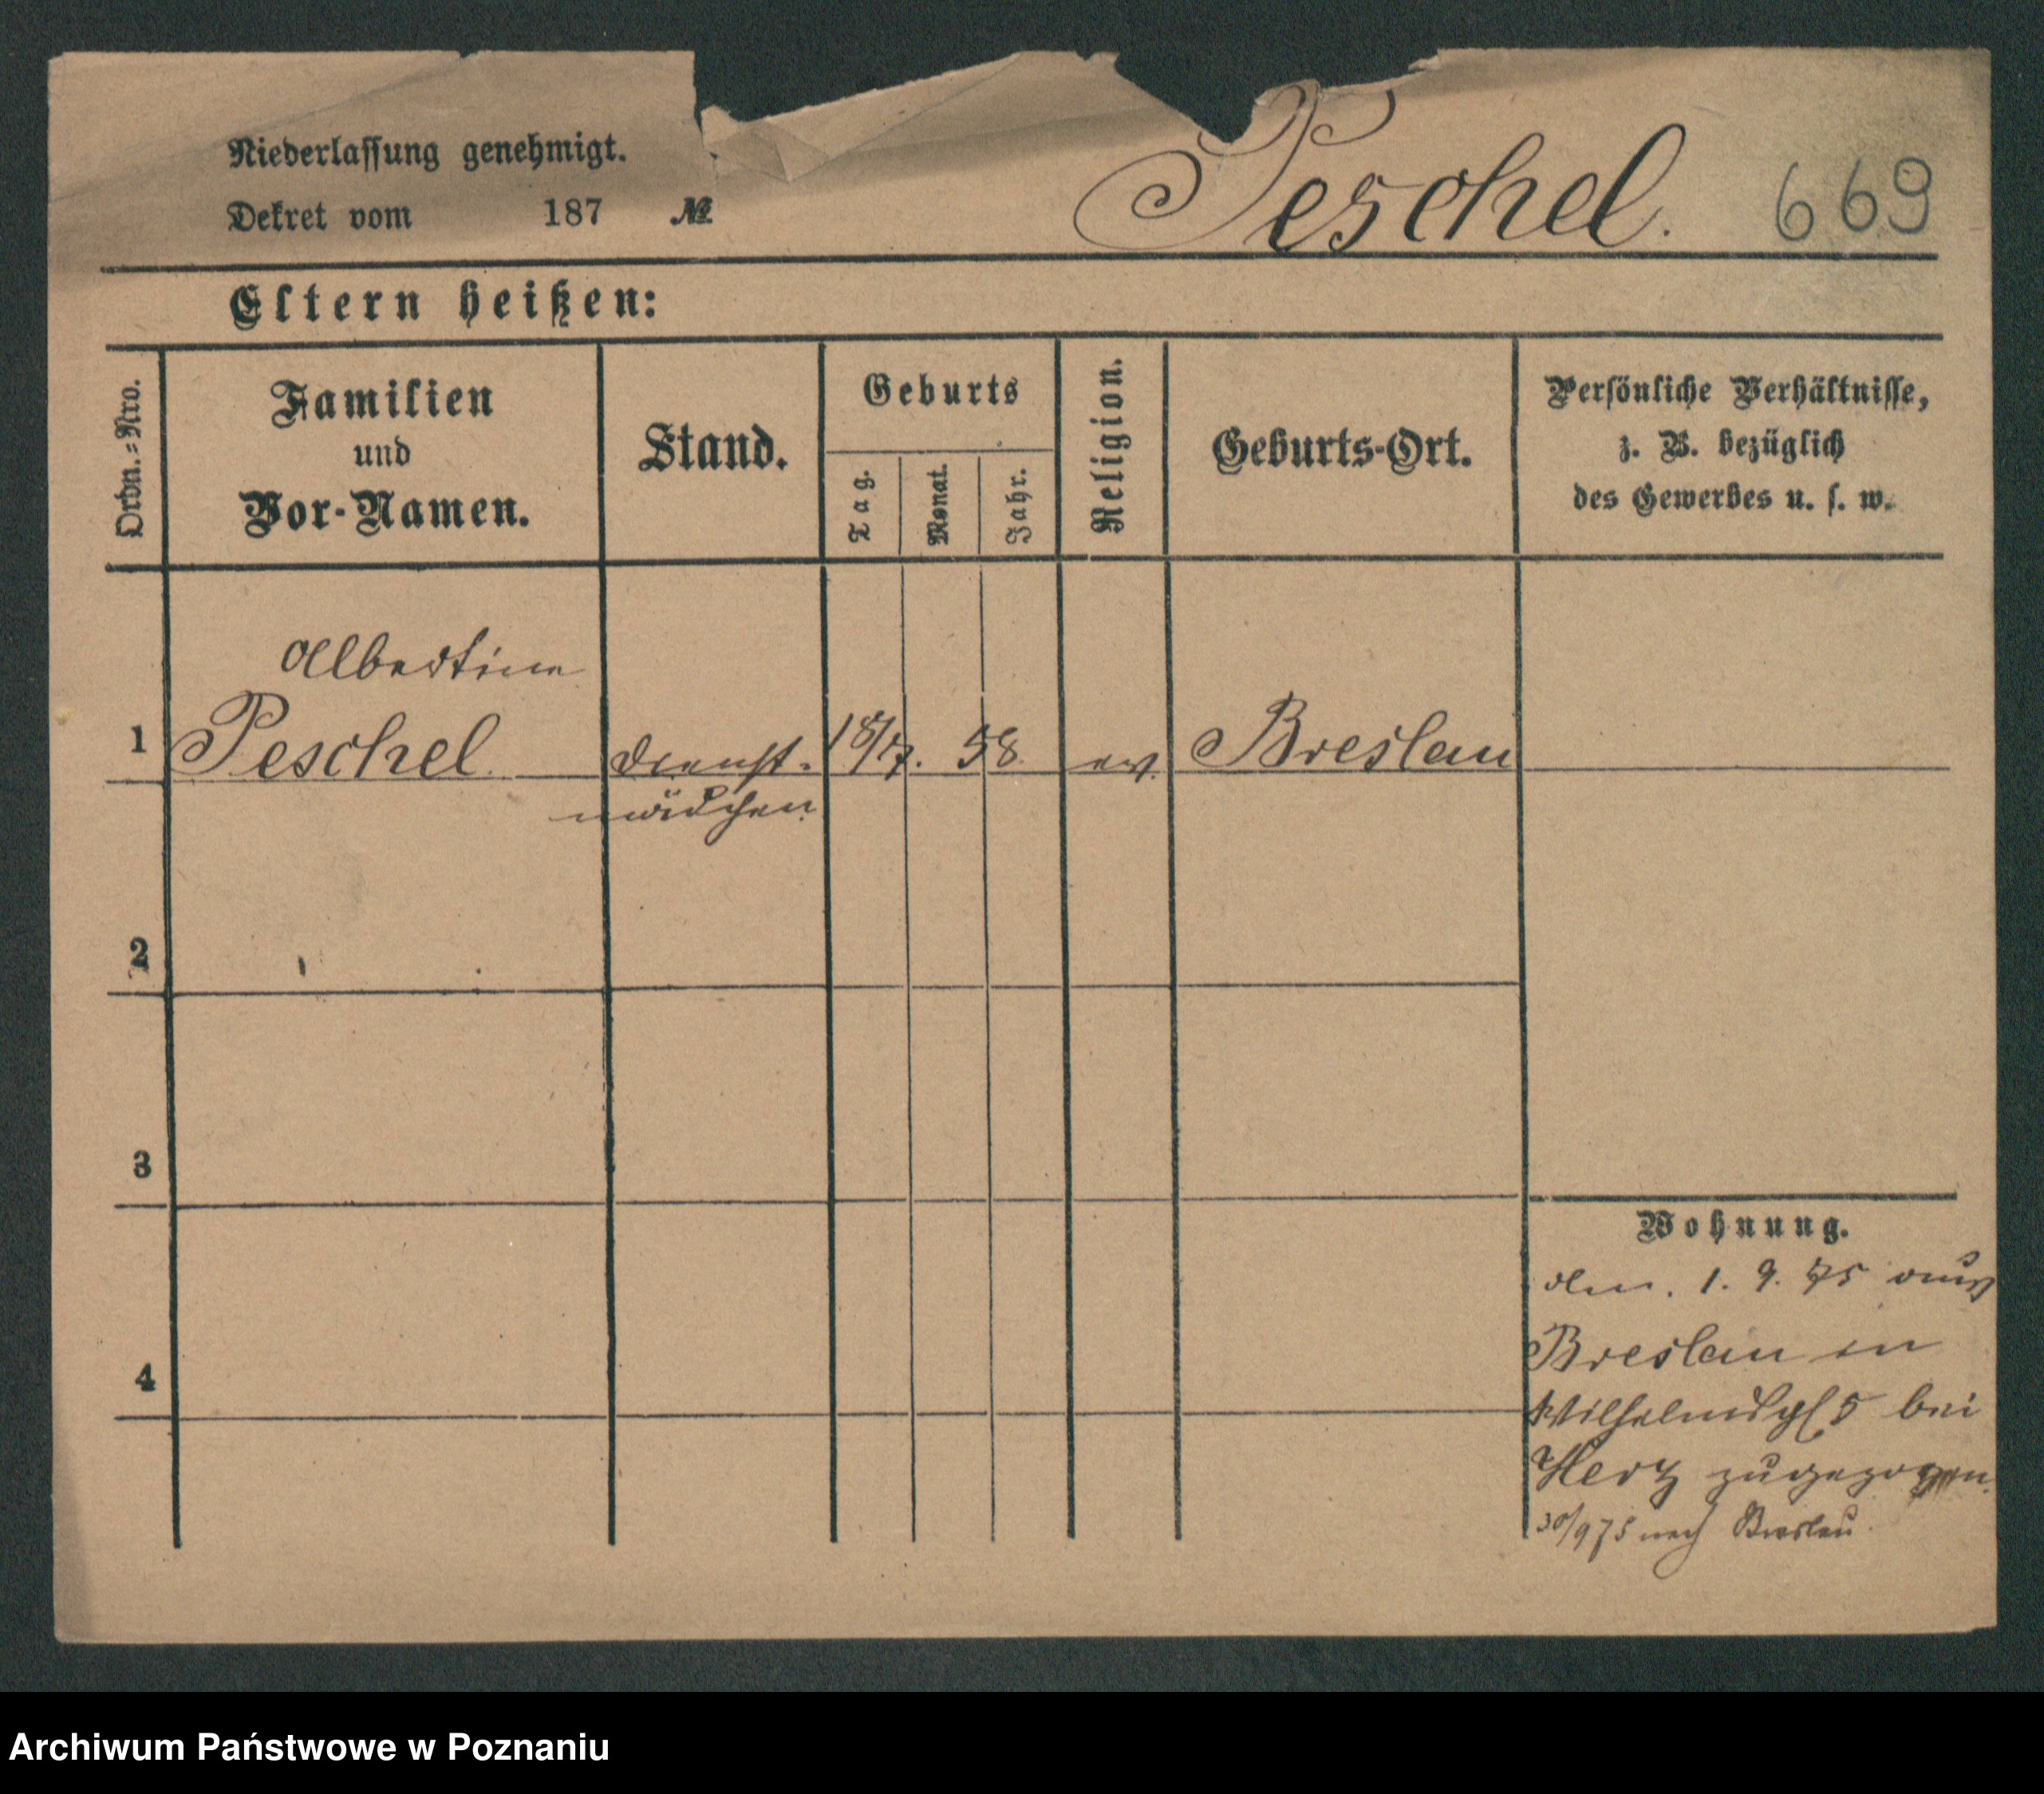 Niederlassung genehmigt.
Dekret vom 187 №
Peschel. 669
Eltern heißen:
Ordn.=Nro.
Familien
und
Vor-Namen.
Stand.
Geburts
Tag.
Monat.
Jahr.
Religion.
Geburts-Ort.
Persönliche Verhältnisse,
z. B. bezüglich
des Gewerbes u. s. w.
Albertine
1 Peschel. Dienst- 58 ev. Breslau
mädchen
2
3
4
Wohnung.
den. 1. 9. 75 aus
Breslau in
Wilhelmspl 5 bei
Herz zugezogen.
30/9 75 nach Breslau.
Archiwum Państwowe w Poznaniu